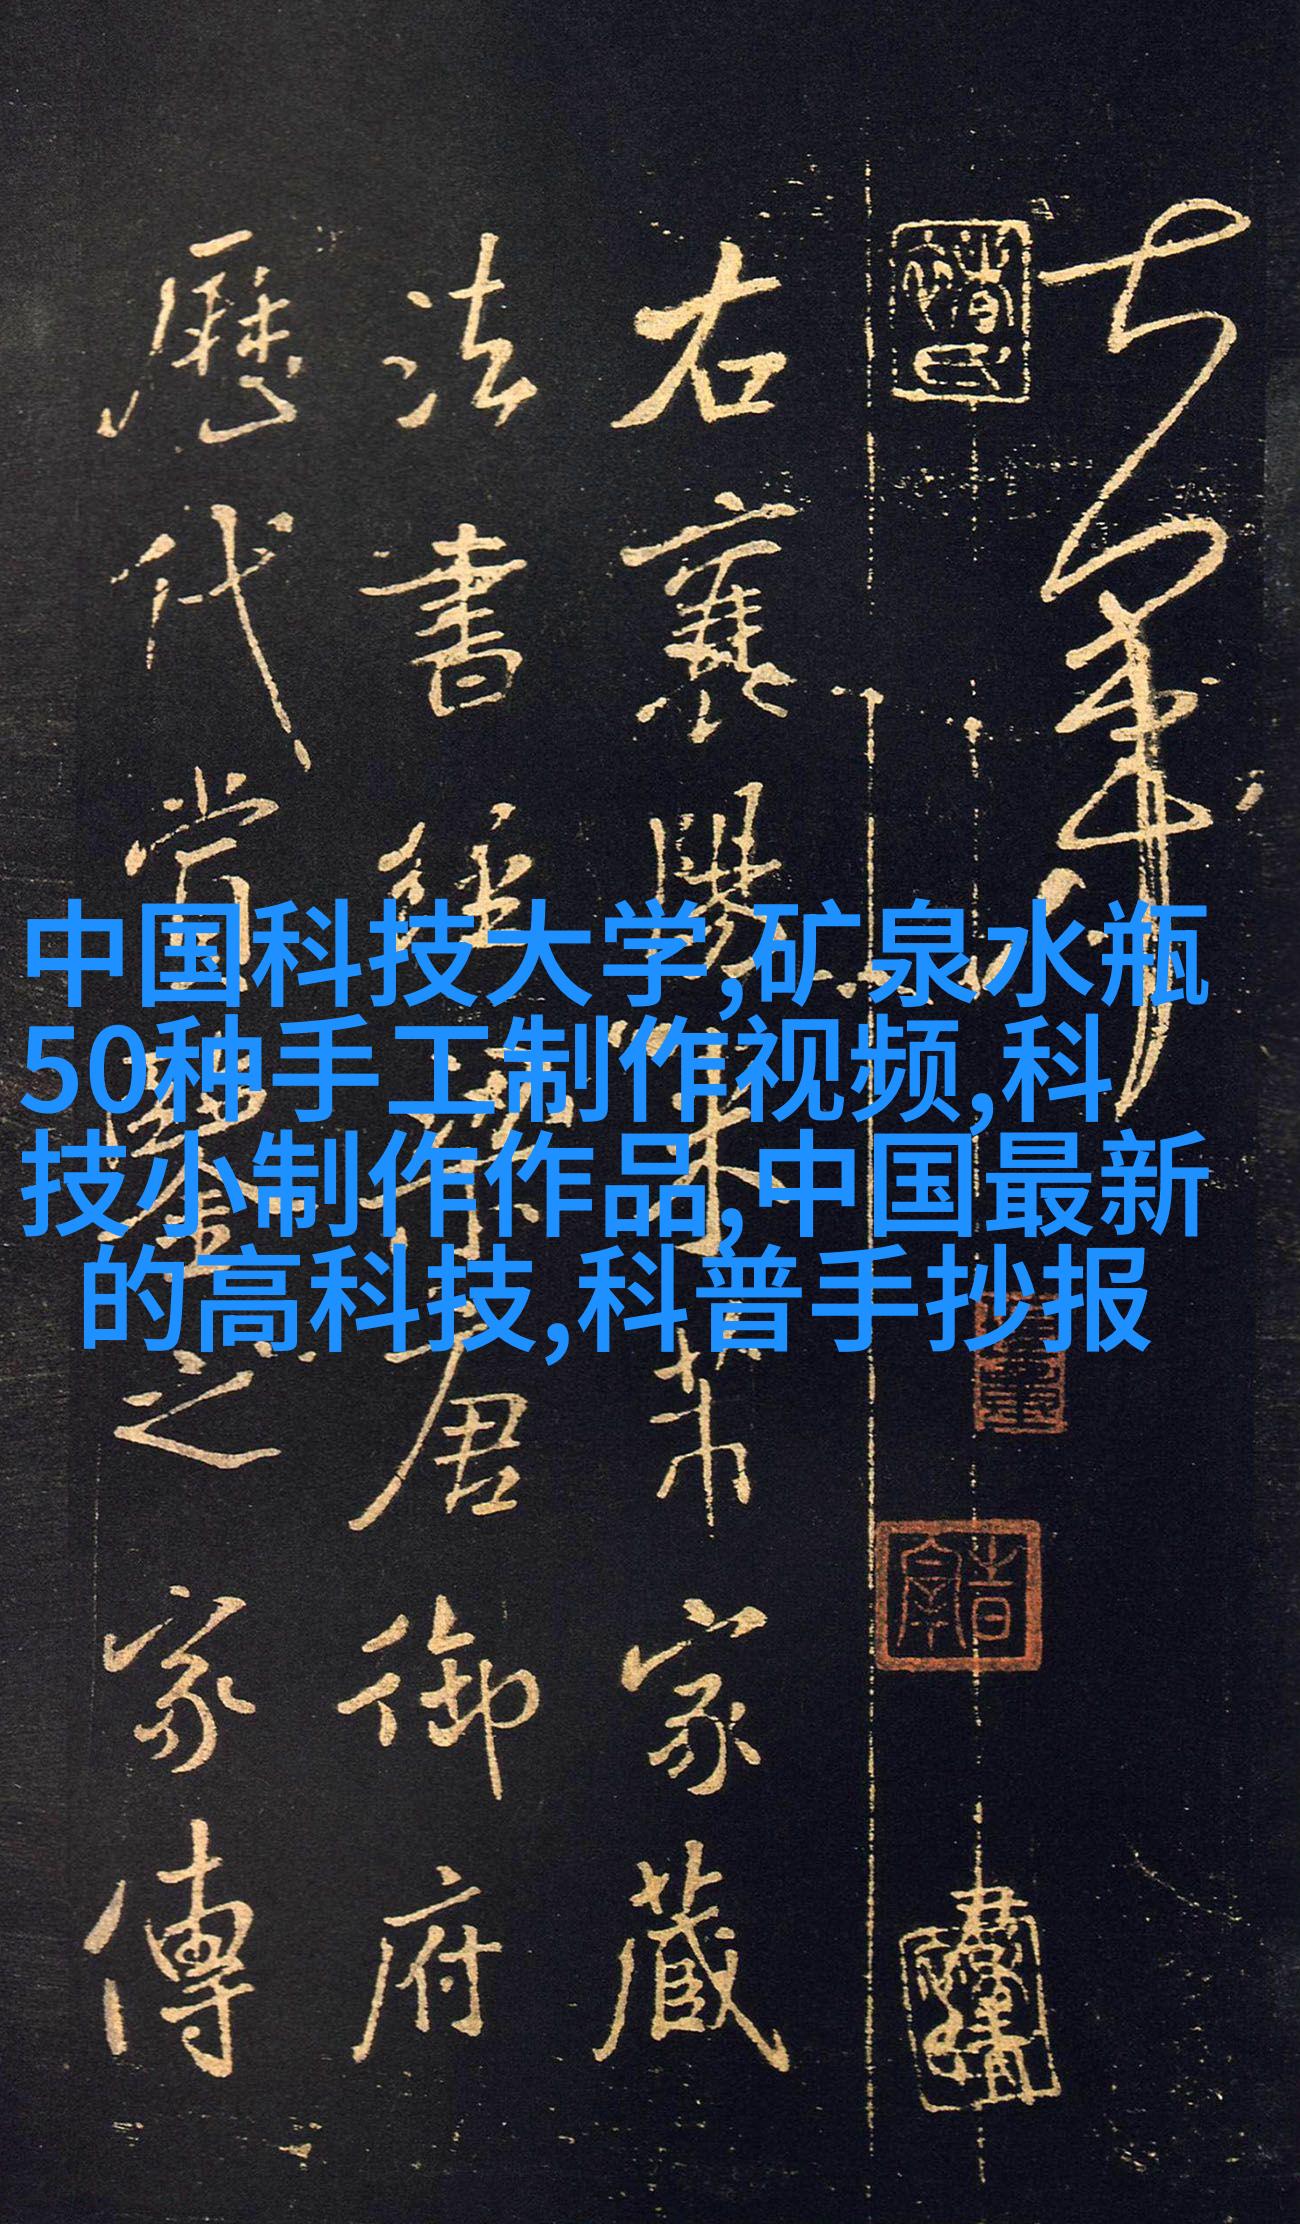 右襄陽米芾家藏
法書經唐御府
歷代賞鑒之家傳
中国科技大学,矿泉水瓶
50种手工制作视频,科
技小制作作品,中国最新
的高科技,科普手抄报